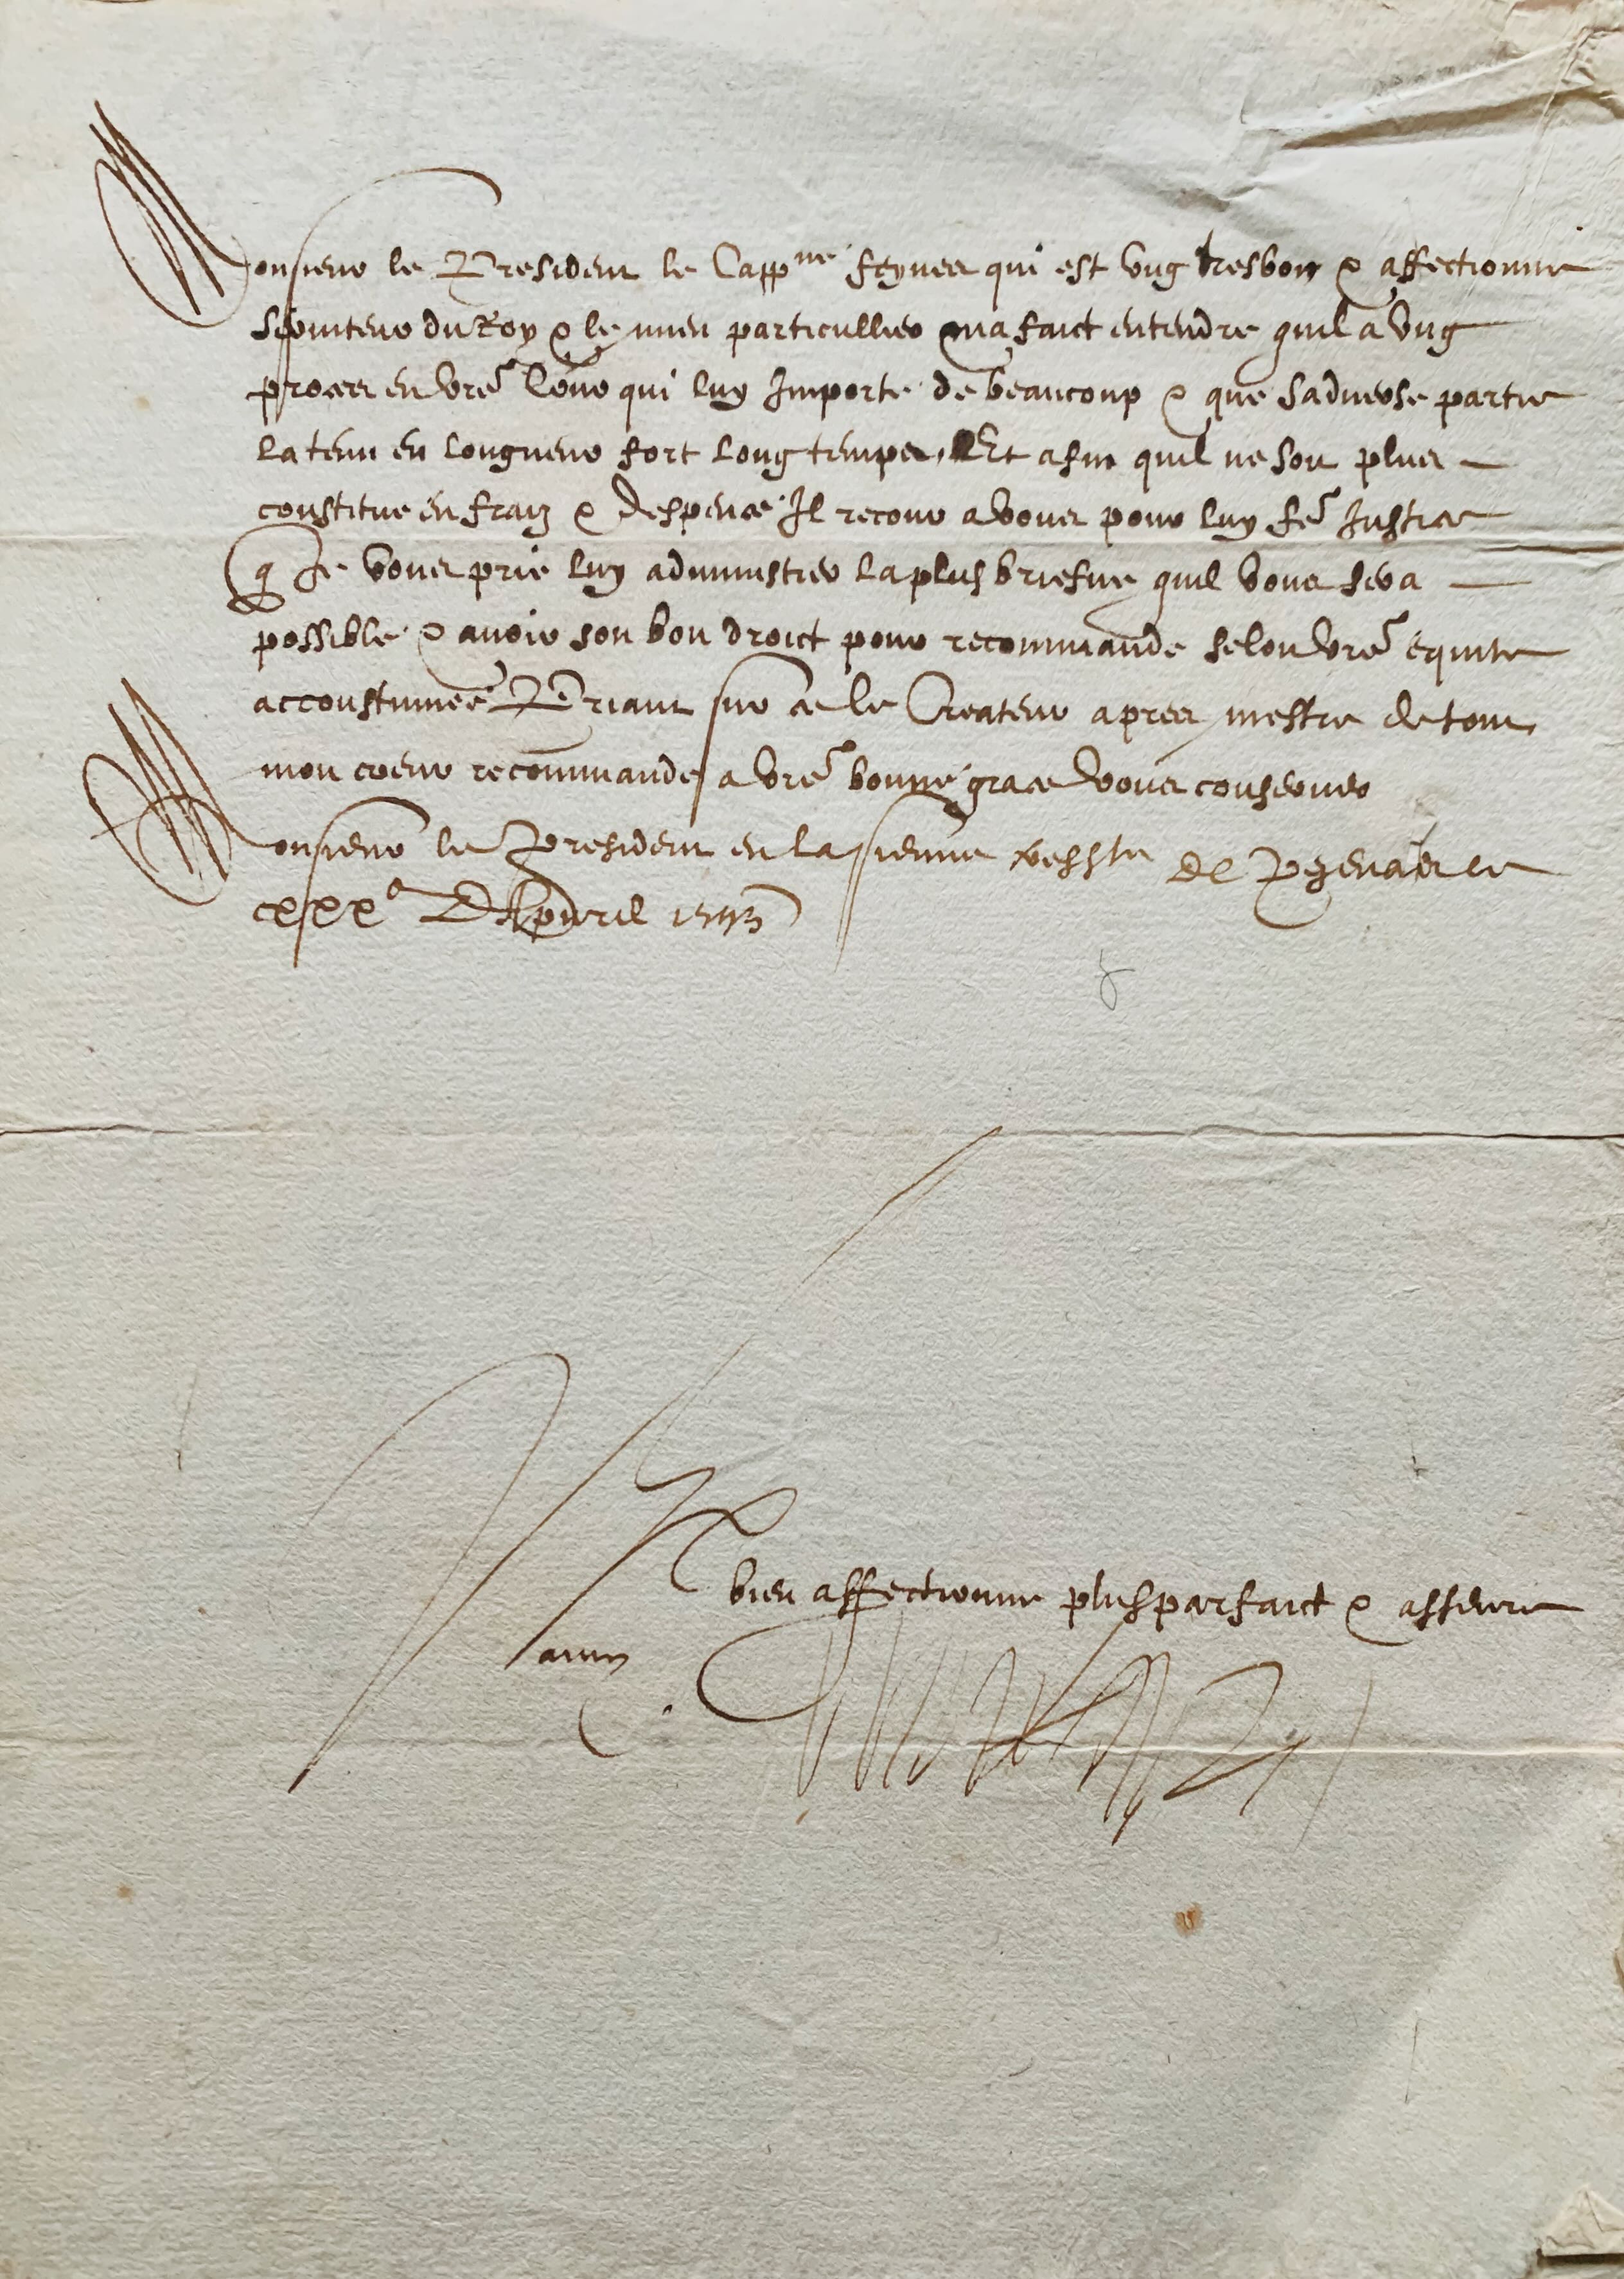 Monsieur le President le Capp^ne feynes qui est ung tresbon & affectionne
serviteur du Roy & le mien particullier ma faict entendre quil a ung
proces en vre Cour qui luy Importe de beaucoup & que sadverse partie
la tenu en longueur fort long temps. Et afin quil ne soit plus
constitue en fraiz & despence Il recourt a vous pour luy fe Justice
q Je vous prie luy administrer la plus briefve quil vous sera
possible & avoir son bon droict pour recommande selon vre equite
accoustumee Priant sur ce le Createur apres mestre de tout
mon coeur recommande a vre bonne grace vous conserver
Monsieur le President en la sienne de Pezenas ce
xxx^e Dapvril
bien affectionne plus parfaict & asseure
amy